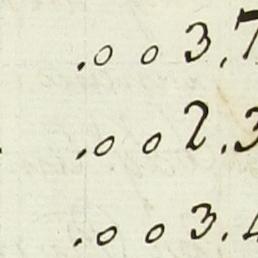 .003.7
.002.3
.003.4